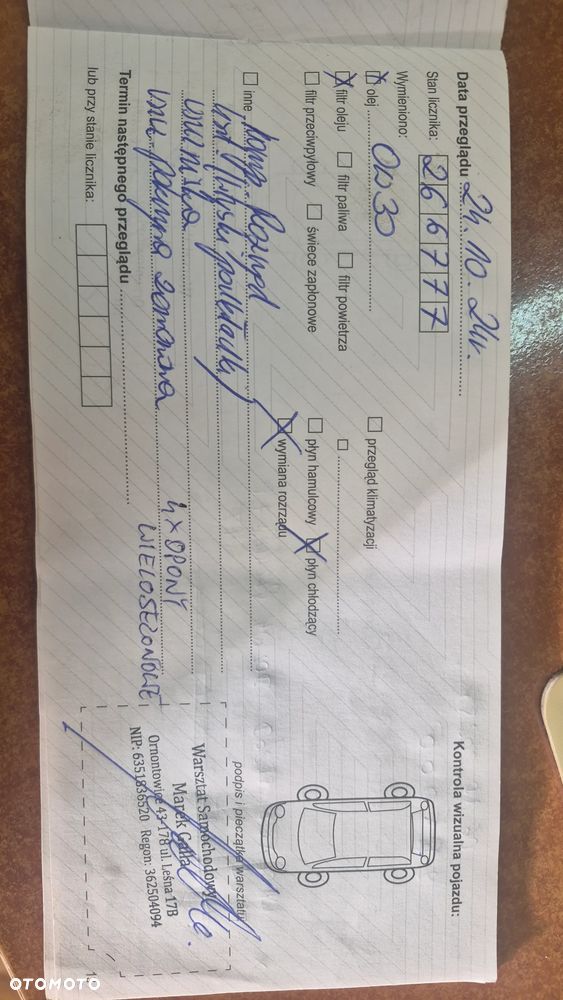 Data przeglądu 24.10.24r.
Stan licznika: 266777
Wymieniono:
olej 0W30
filtr oleju filtr paliwa filtr powietrza
filtr przeciwpyłowy świece zapłonowe
przegląd klimatyzacji
płyn hamulcowy płyn chłodzący
wymiana rozrządu
inne komp. Rozrząd
4 x OPONY
WIELOSEZONOWE
Termin następnego przeglądu
lub przy stanie licznika:
Kontrola wizualna pojazdu:
podpis i pieczątka warsztatu
Warsztat Samochodowy
Marek
Ornontowice 43-178 ul. Leśna 17B
NIP: 6351836520 Regon: 362504094
OTOMOTO